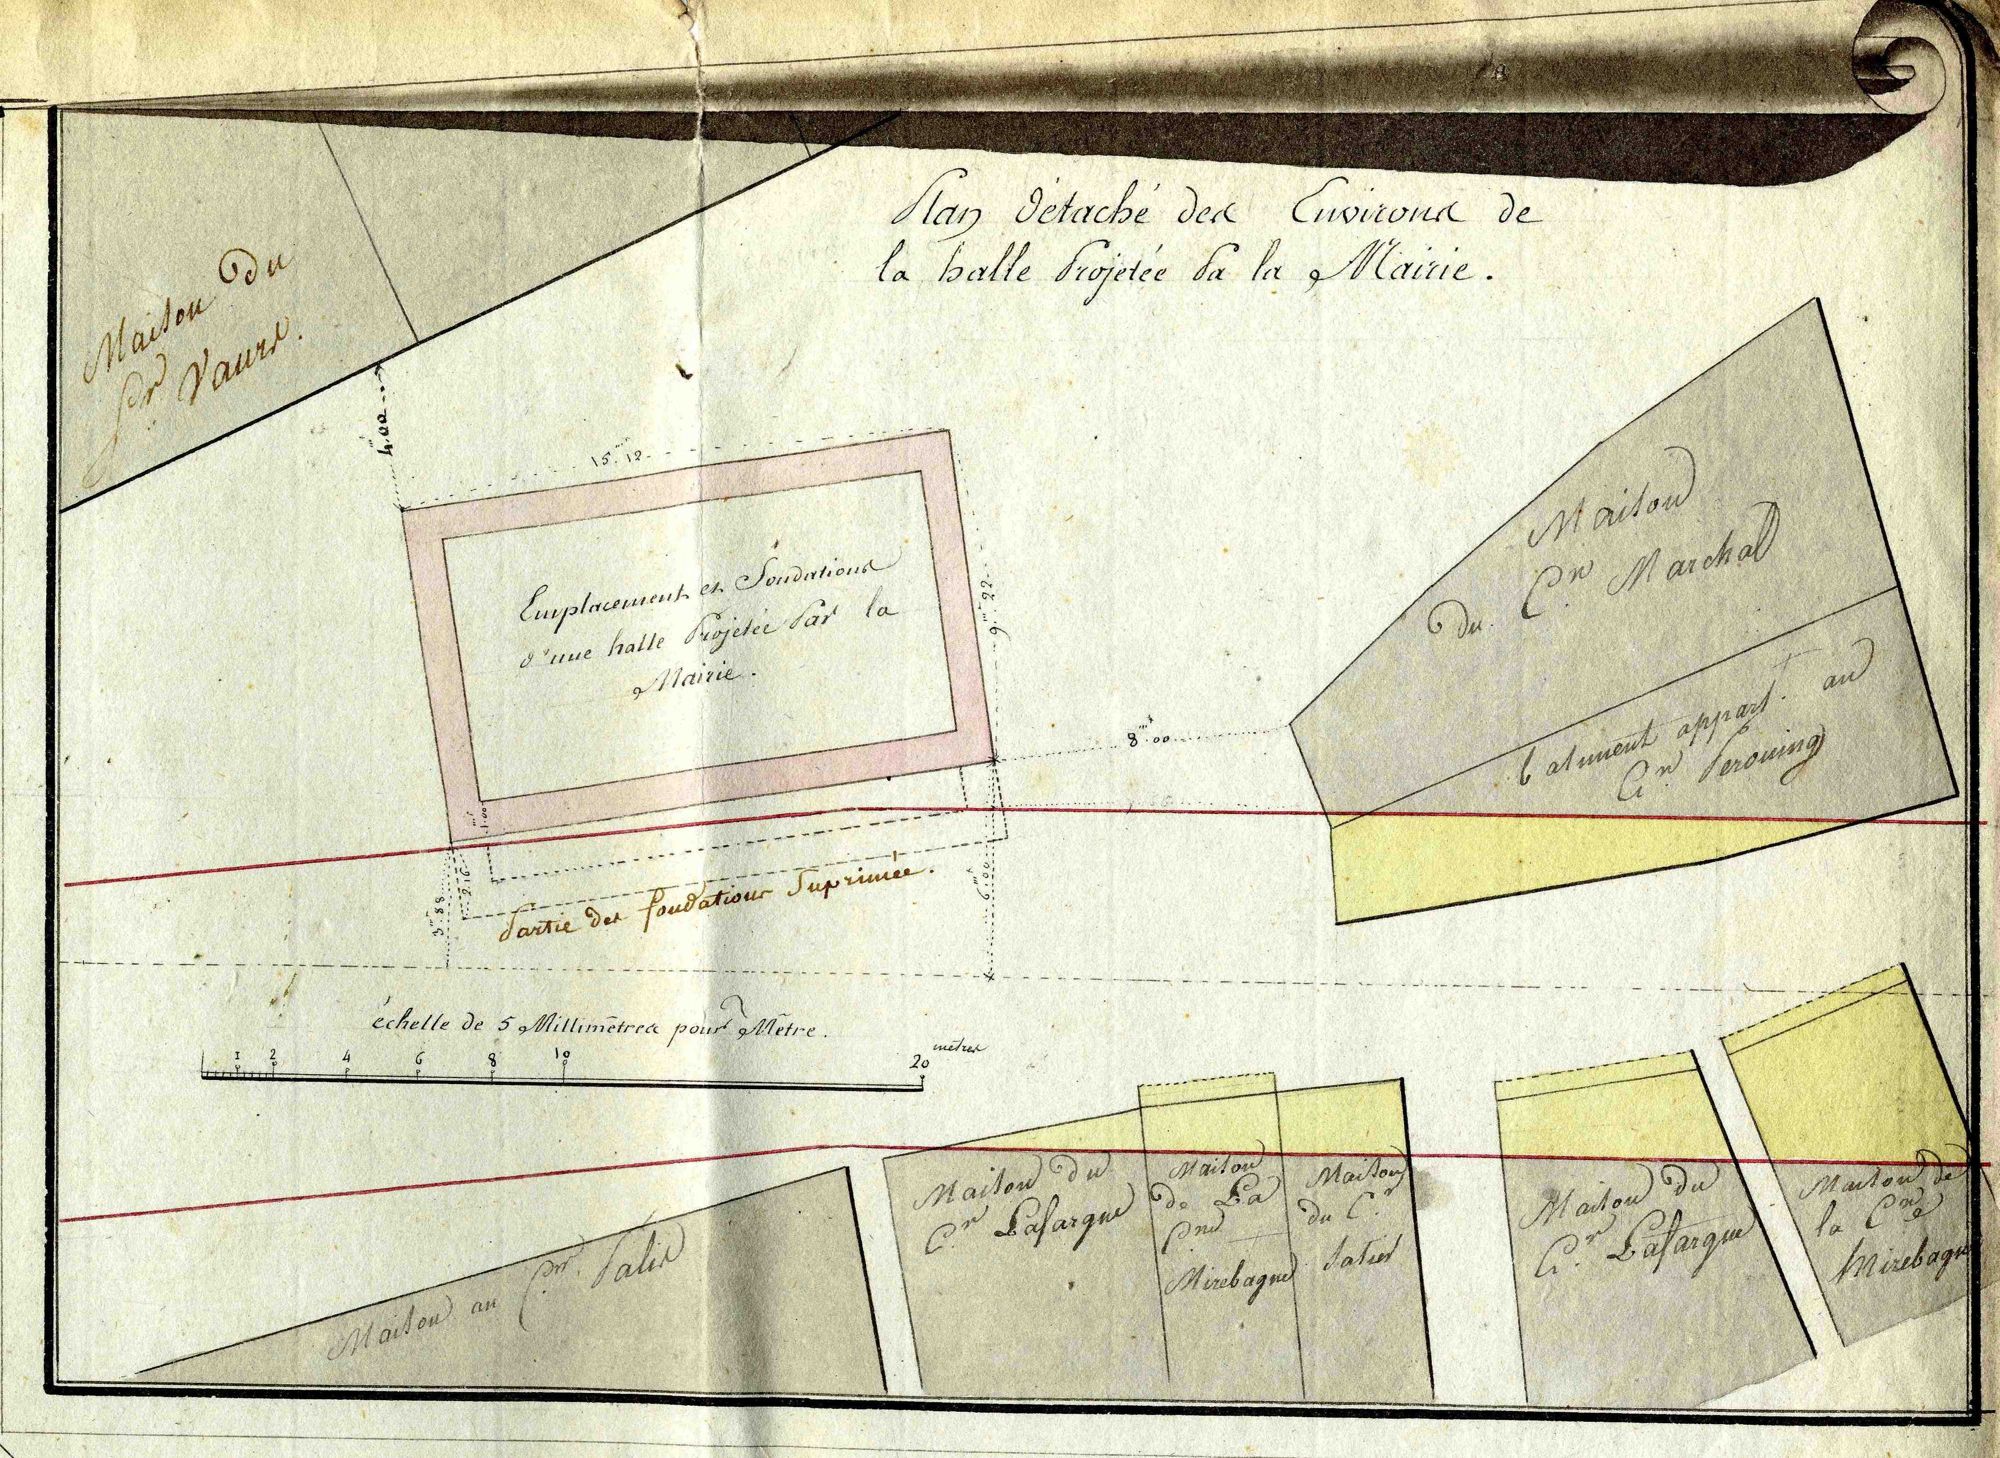 Plan détaché des Environs de
la halle Projetée Pa la Mairie.
Maison du
Sr Vaurs.
4.m00
15.m12
9.m22
8.m00
Emplacement et Fondations
d'une halle Projetée Par la
Mairie.
1.m00
2.16
3.m88
6.m00
Partie des fondations Suprimée.
Maison
du Cn Marchal
batiment appart. au
Cn
échelle de 5 Millimètres pour Mètre.
1 2 4 6 8 10 20 mètres
Maison au Cn Palis
Maison du
Cn Lafargue
Maison
de La
Cne
Mirebague
Maison
du Cn
Maison du
Cn Lafargue
Maison de
la Cne
Mirebague